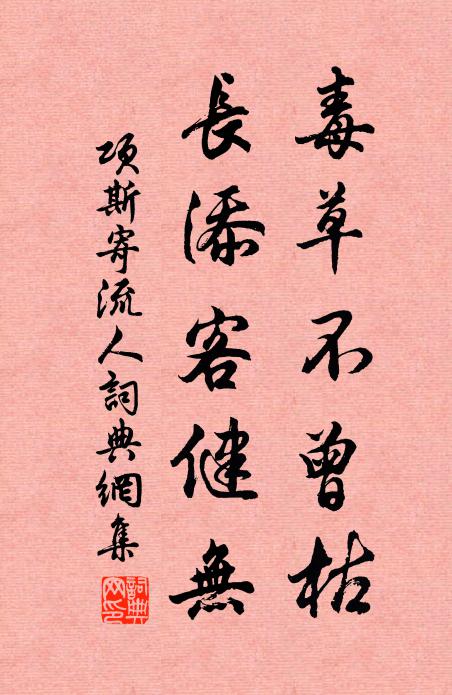 毒草不曾枯
長添客健無
項斯寄流人詞典網集
詞典網印